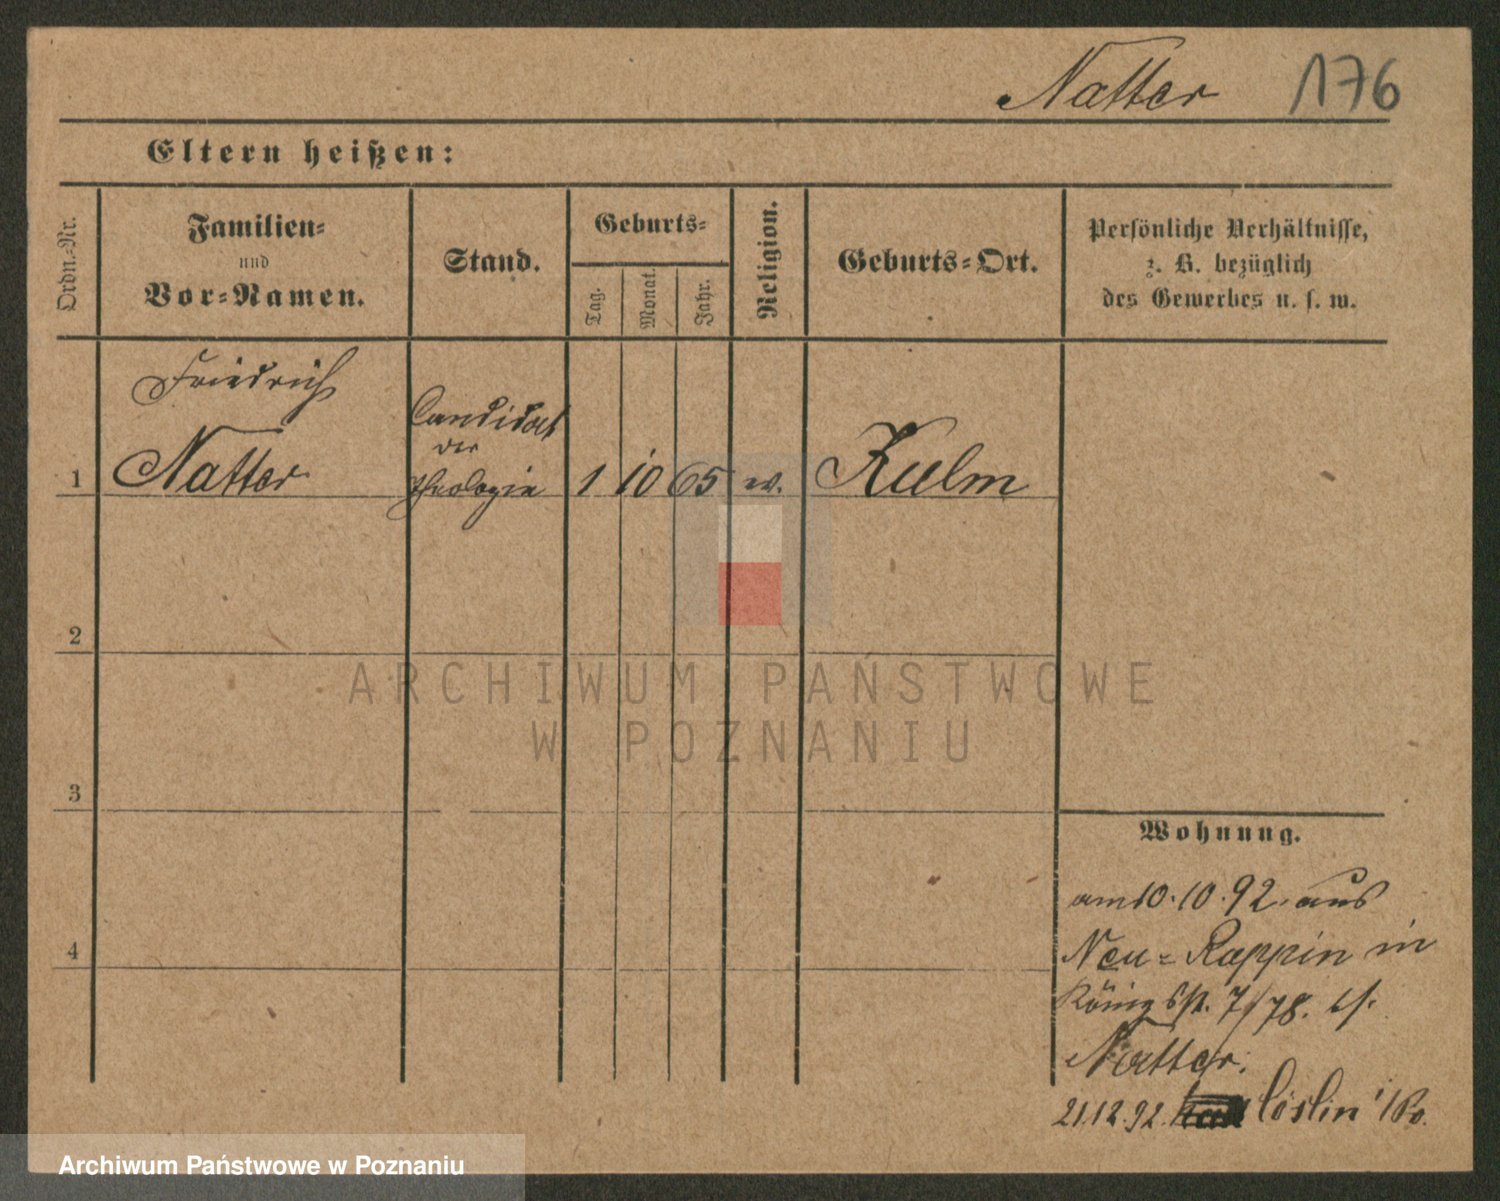 Natter 176
Eltern heißen:
Ordn.-Nr.
Familien-
und
Vor-Namen.
Stand.
Geburts-
Tag.
Monat.
Jahr.
Religion.
Geburts-Ort.
Persönliche Verhältnisse,
z. B. bezüglich
des Gewerbes u. s. w.
Friedrich
Candidat
der
1 Natter Theologie 1 10 65 ev. Kulm
2
3
4
ARCHIWUM PAŃSTWOWE
W POZNANIU
Wohnung.
am 10.10.92. aus
Neu-Ruppin in
Königsst. 7/78. bei
Natter.
21.12.92. Cöslin /Po.
Archiwum Państwowe w Poznaniu